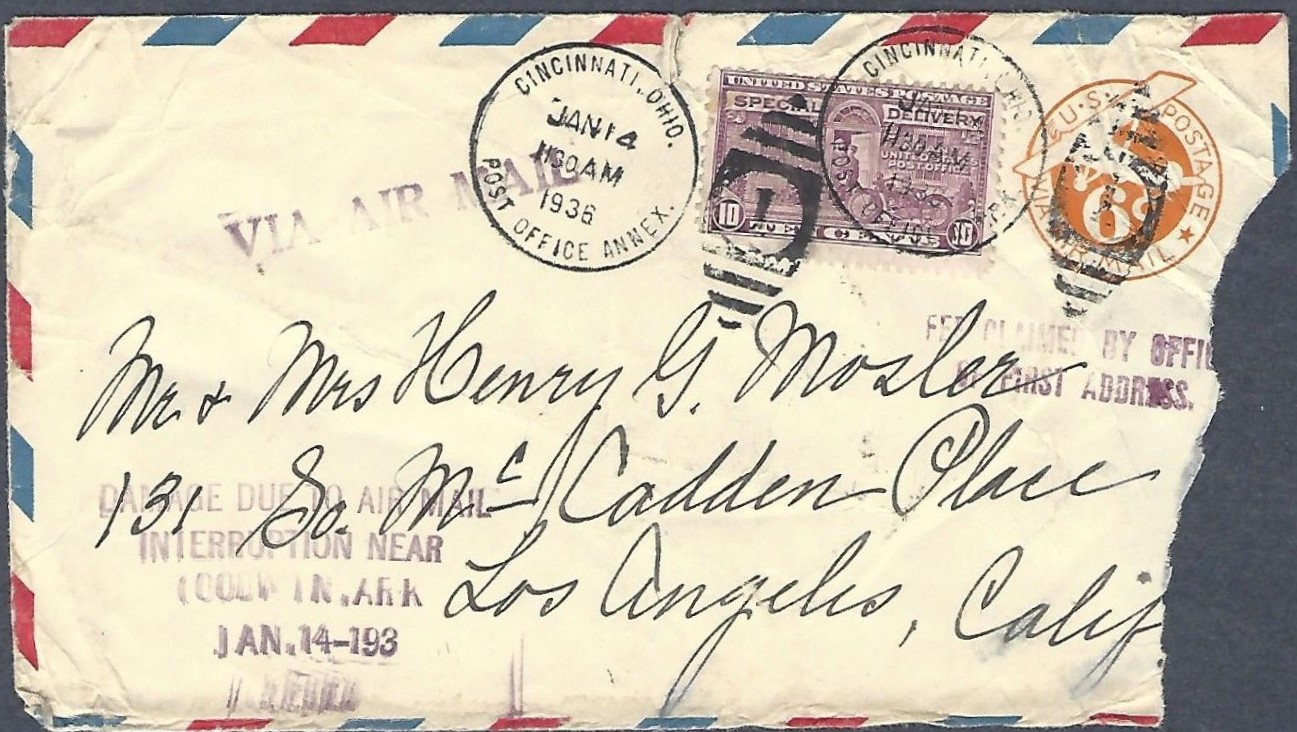 CINCINNATI, OHIO.
JAN 14
1130 AM
1936
POST OFFICE ANNEX.
VIA AIR MAIL
UNITED STATES POSTAGE
SPECIAL DELIVERY
UNITED STATES
POST OFFICE
10 10
CINCINNATI, OHIO.
JAN
1130 AM
1936
POST OFFICE
U.S. POSTAGE
6¢
VIA AIR MAIL
FEE CLAIMED BY OFFI
OF FIRST ADDRESS.
Mr. & Mrs Henry G. Mosler
131 So. Mc Cadden Place
Los Angeles, Calif
DAMAGE DUE TO AIR MAIL
INTERRUPTION NEAR
GOODWIN, ARK
JAN. 14-193